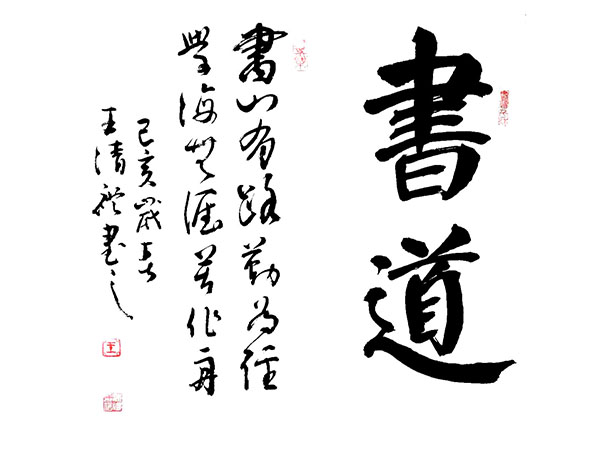 書道
書山有路勤為徑
學海無涯苦作舟
己亥歲
王清書之
王